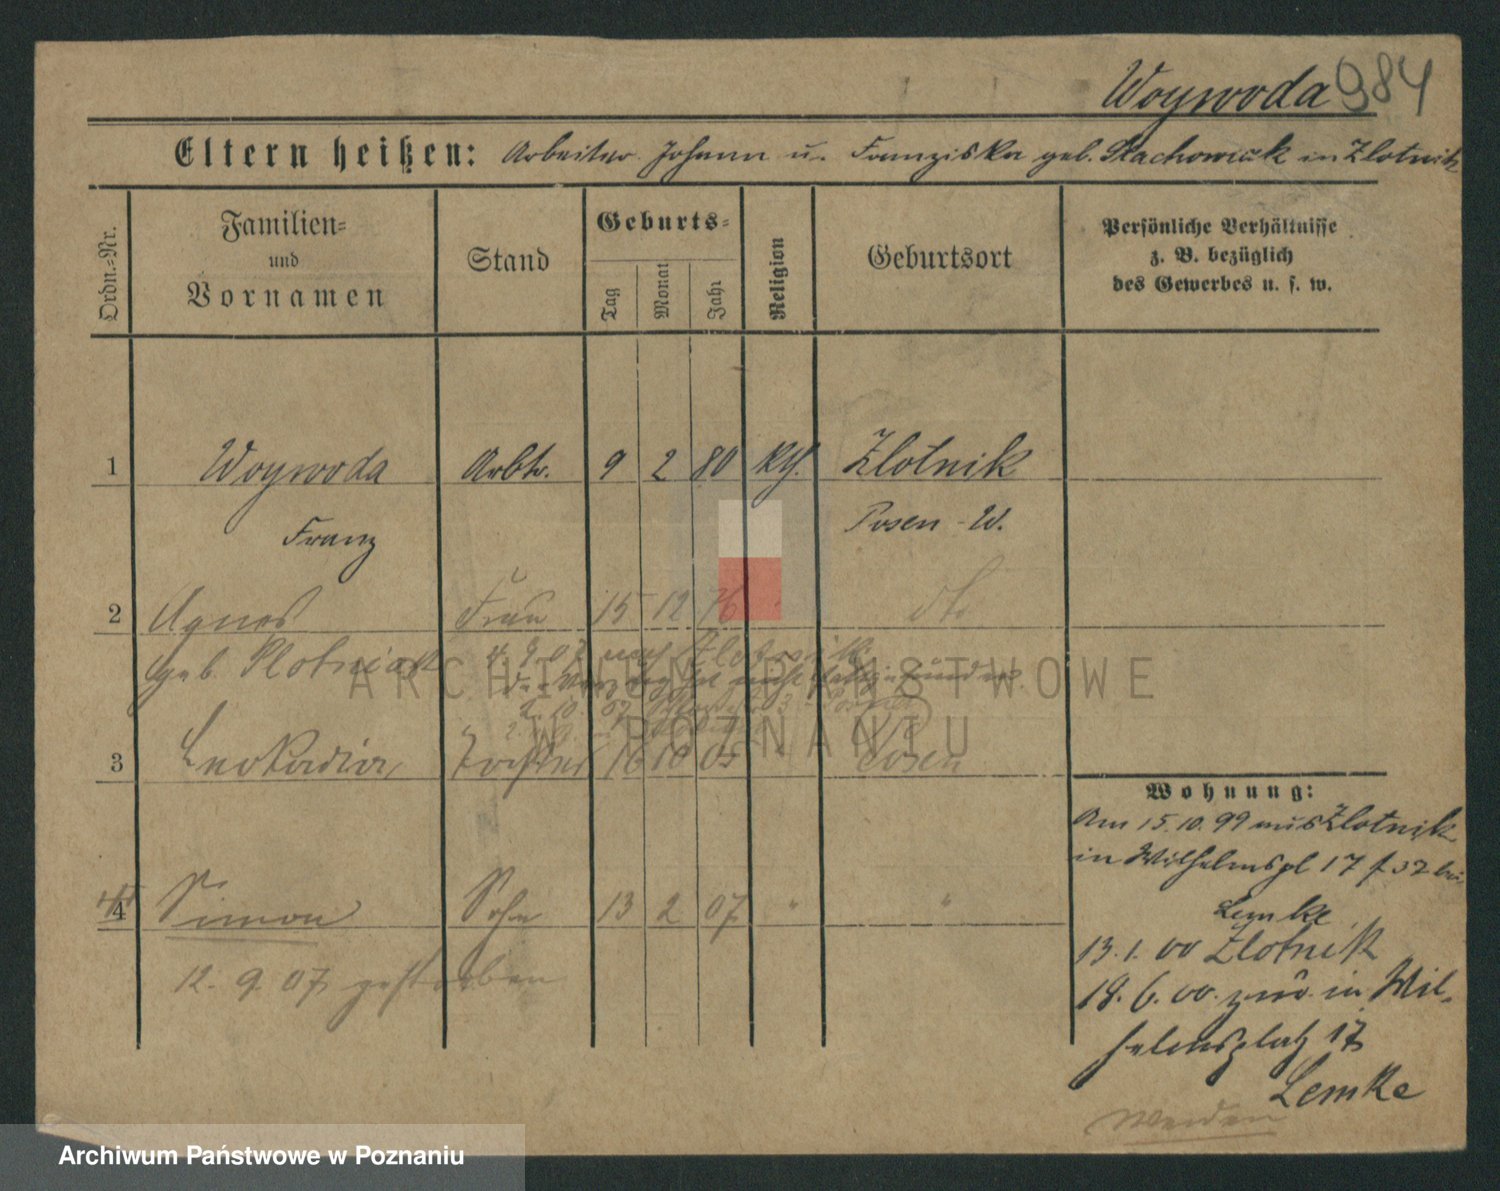 Woywoda 984
Eltern heißen: Arbeiter Johann u. Franziska geb. Stachowiak in Zlotnik
Ordn.-Nr.
Familien-
und
Vornamen
Stand
Geburts-
Tag
Monat
Jahr
Religion
Geburtsort
Persönliche Verhältnisse
z. B. bezüglich
des Gewerbes u. s. w.
1 Woywoda Arbtr. 9 2 80 kth. Zlotnik
Franz Posen - W.
2 Agnes Frau 15 12 76 dto
geb. Plotniak 4. 9. 07 nach Zlotnik
3 Leokadia Tochter 16 10 05 Posen
4 Simon Sohn 13 2 07 " "
12. 9. 07 gestorben
Wohnung:
Am 15. 10. 99 aus Zlotnik
in Wilhelmspl 17 bei
Lemke
13. 1. 00 Zlotnik
18. 6. 00. zur. in Wil-
helmsplatz 17
Lemke
wenden
ARCHIWUM PAŃSTWOWE
W POZNANIU
Archiwum Państwowe w Poznaniu